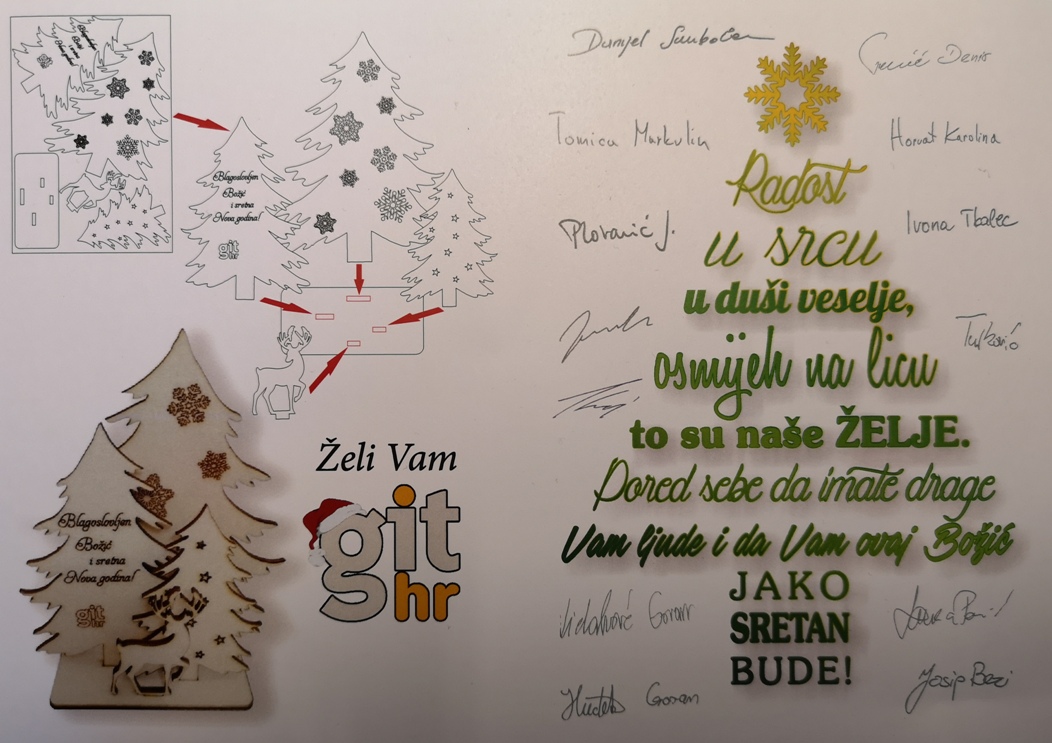 Blagoslovljen
Božić
i sretna
Nova godina!
git
hr
Blagoslovljen
Božić
i sretna
Nova godina!
git
hr
Želi Vam
git
hr
Denis
Tomica Markulin
Horvat Karolina
Plovanić J.
Ivona Tkalec
Radost
u srcu
u duši veselje,
osmijeh na licu
to su naše ŽELJE.
Pored sebe da imate drage
Vam ljude i da Vam ovaj Božić
JAKO
SRETAN
BUDE!
Goran
Goran
Josip